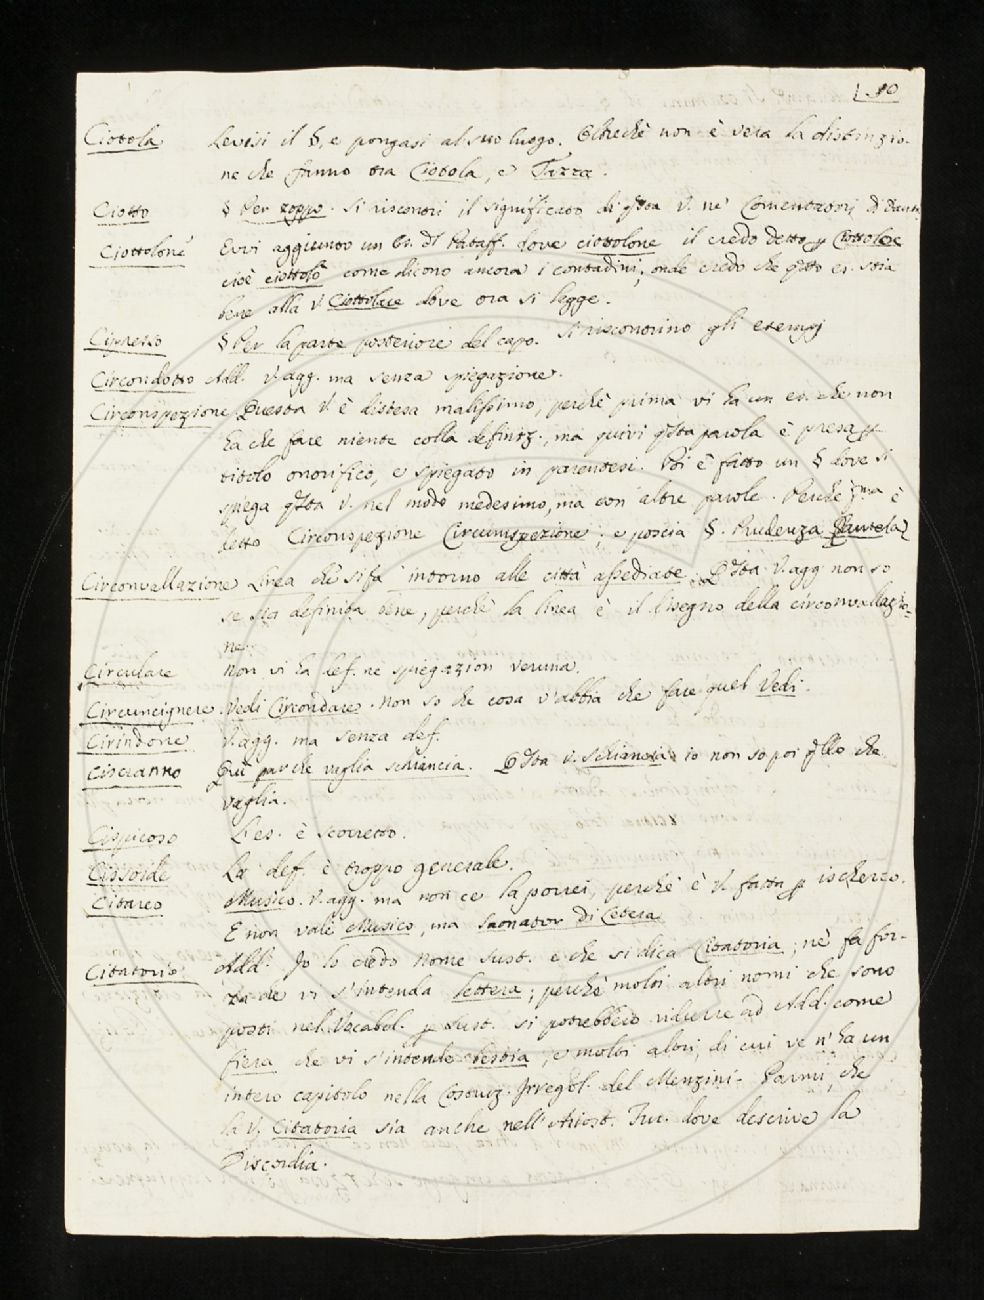 10
Ciotola Levisi il §, e pongasi al suo luogo. Oltrechè non è vera la distinzio-
ne che fanno tra Ciotola, e Tazza.
Ciotto § Per zoppo. Si riscontri il significato di qsta V. ne' Comentatori di Dante
Ciottolone Evvi aggiunto un Es. dl Pataff. dove ciottolone il credo detto p Ciottolone
cioè ciottolo come dicono ancora i contadini, onde credo che qsto es. stia
bene alla V. Ciottolone dove ora si legge.
Cipresso § Per la parte posteriore del capo. Si riscontrino gli esempj
Circondotto Add. V. agg. ma senza spiegazione.
Circonspezione Questa V. è distesa malissimo, perchè prima vi ha un es. che non
ha che fare niente colla definiz., ma quivi qsta parola è presa p
titolo onorifico, e spiegato in parentesi. Poi è fatto un § dove si
spiega qsta V. nel modo medesimo, ma con altre parole. Perchè pma è
detto Circonspezione Circumspezione; e poscia §. Prudenza Cautela
Circonvallazione Linea che si fa intorno alle città assediate. Qsta V. agg non so
se sia definita bene, perchè la linea è il disegno della circonvallazio-
ne.
Circulare Non vi ha def. ne spiegazion veruna.
Circuncignere. Vedi Circondare. Non so che cosa v'abbia che fare quel Vedi.
Cirindone V. agg. ma senza def.
Ciscranno Qui par che vaglia schiancia. Qsta V. schiancia io non so poi qllo che
vaglia.
Cispicoso L'es. è scorretto.
Cissoide La def. è troppo generale.
Citareo Musico. V. agg. ma non ce la porrei, perchè è V. fatta p ischerzo.
E non vale Musico, ma Suonator di Cetera
Citatorio Add. Io lo credo nome sust. e che si dica Citatoria; nè fa for-
za che vi s'intenda lettera; perchè molti altri nomi che sono
posti nel Vocabol. p sust. si potrebbero ridurre ad Add. come
fiera che vi s'intende bestia, e molti altri, di cui ve n'ha un
intero capitolo nella Costruz. Irregol. del Menzini. Parmi, che
la V. Citatoria sia anche nell'Ariost. Fur. dove descrive la
Discordia.